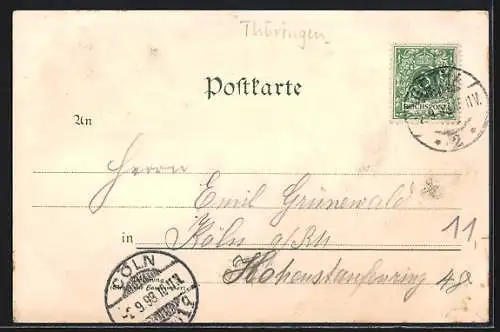 Thüringen
Postkarte
REICHSPOST
An
Herrn
Emil Grünewald
in Köln a/Rh
Hohenstaufenring 48
11,
CÖLN
9.98
2